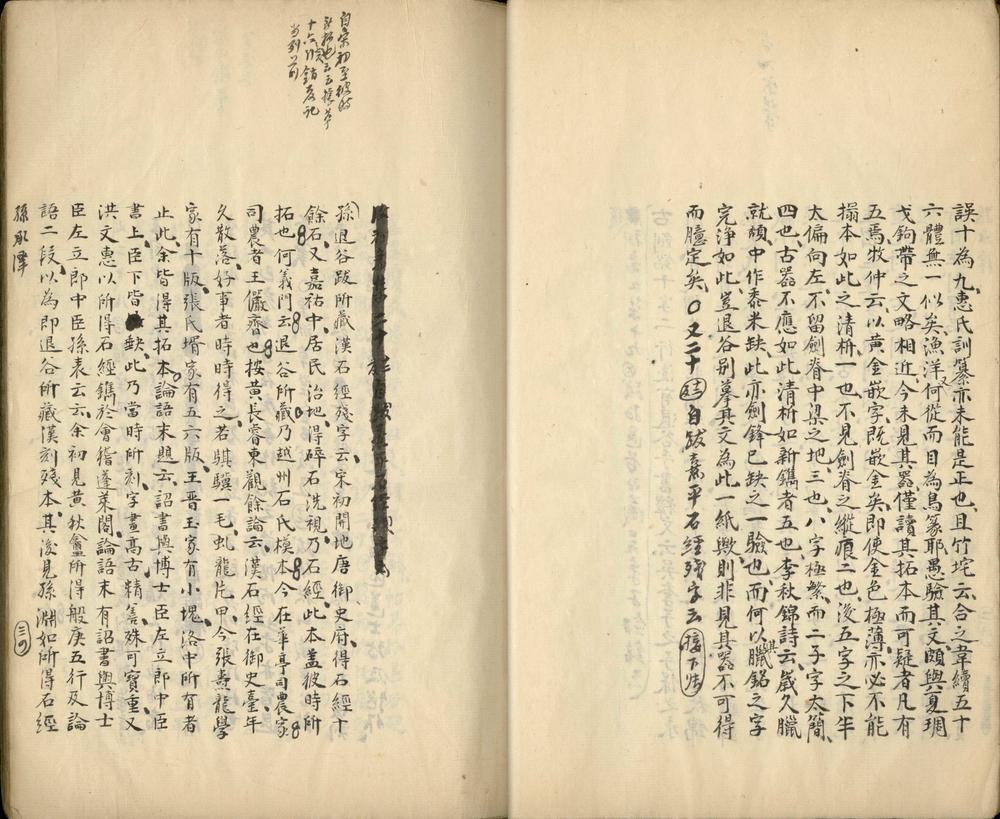 誤十為九惠氏訓纂亦未能是正也且竹垞云合之韋續五十
六體無一似矣漁洋又何從而目為鳥篆耶愚驗其文頗與夏琱
戈鉤帶之文略相近今未見其器僅讀其拓本而可疑者凡有
五焉牧仲云以黃金嵌字既嵌金矣即使金色極薄亦必不能
搨本如此之清枬一也不見劍脊之縱痕二也後五字之下半
太偏向左不留劍脊中梁之地三也八字極繁而二子字太簡
四也古器不應如此清析如新鐫者五也李秋錦詩云歲久臘
就頑中作黍米缺此亦劍鋒已缺之一驗也而何以與臘銘之字
完淨如此豈退谷別摹其文為此一紙歟則非見其器不可得
而臆定矣〇又二十 自跋熹平石經殘字云 接下
自宋初至彼時
所拓也云云據華
十六 錯彥記
另列前
孫退谷跋所藏漢石經殘字云宋初開地唐御史府得石經十
餘石又嘉祐中居民治地得碎石洗視乃石經此本蓋彼時所
拓也何義門云退谷所藏乃越州石氏模本今在華亭司農家
司農者王儼齋也按黃長睿東觀餘論云漢石經在御史臺年
久散落好事者時時得之若騏驥一毛虬龍片甲今張燾龍學
家有十版張氏壻家有五六版王晉玉家有小塊洛中所有者
止此余皆得其拓本論語末題云詔書與博士臣左立郎中臣
書上臣下皆缺此乃當時所刻字畫高古精善殊可寶重又
洪文惠以所得石經鐫於會稽蓬萊閣論語末有詔書與博士
臣左立郎中臣孫表云云余初見黃秋盦所得般庚五行及論
語二段以為即退谷所藏漢刻殘本其後見孫淵如所得石經
孫承澤